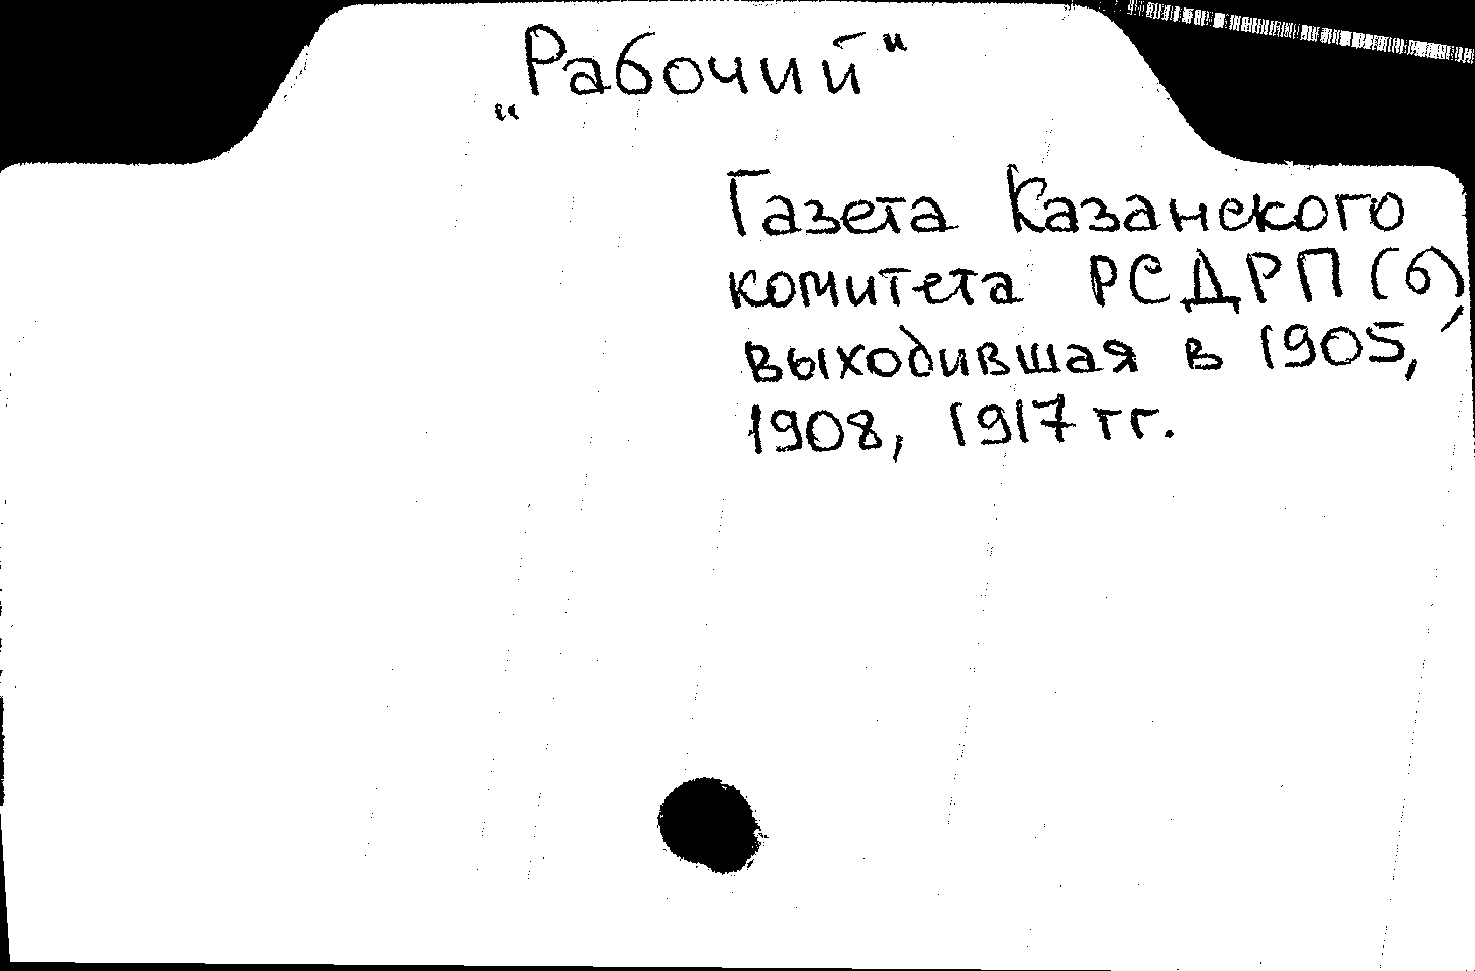 „Рабочий"
Газета Казанского
комитета РСДРП(б),
выходившая в 1905,
1908, 1917 гг.